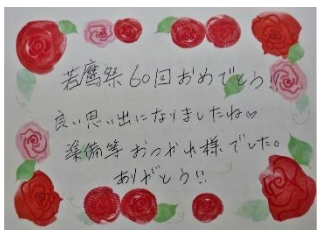 若鷹祭60回おめでとう!!
良い思い出になりましたね♡
準備等おつかれ様でした。
ありがとう!!